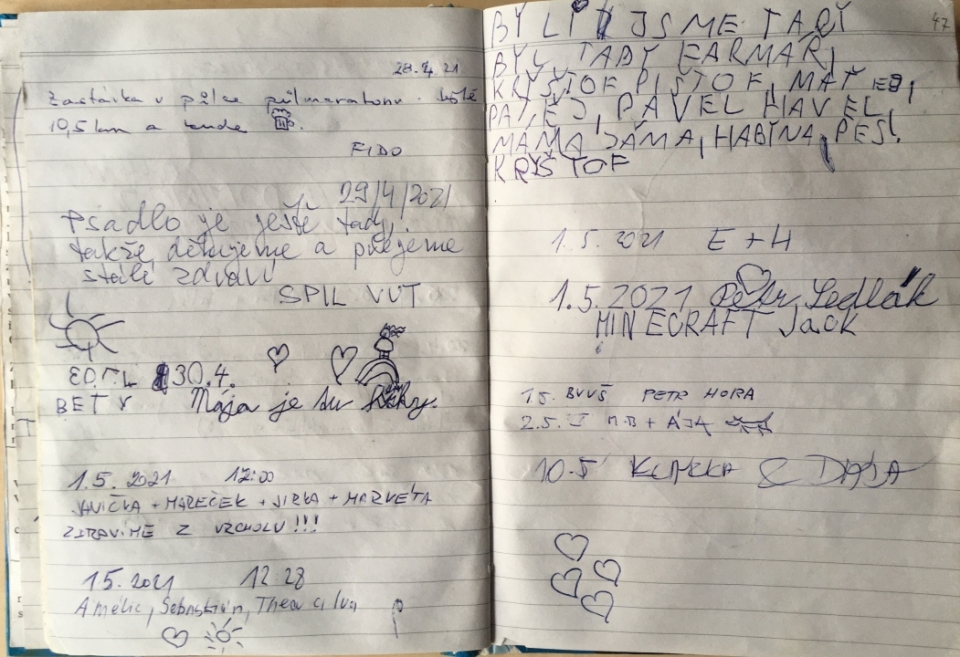 28.4.21
Zastávka v půlce půlmaratonu. Ještě
10,5 km a bude
FIDO
29/4/2021
Psadlo je ještě tady,
takže děkujeme a přejeme
stálé zdraví
SPIL VUT
30.4.
BETY Mája je tu
1.5.2021 12:00
JANIČKA + MAREČEK + JIRKA + MARKÉTA
ZDRAVÍME Z VRCHOLU!!!
1.5.2021 12 28
Amélie, Sebastián, Thea a Iva
47
BYLI JSME TADY
BYL TADY FARMÁŘ,
KRYŠTOF PIŠTOF, MATEJ,
PATEJ, PAVEL HAVEL,
MÁMA DÁMA, HABINA, PES!
KRYŠTOF
1.5.2021 E + H
1.5.2021 Petr Sedlák
MINECRAFT Jack
1.5. PETR HORA
2.5. M.B + ÁJA
10.5 KLARKA & DÁĎA